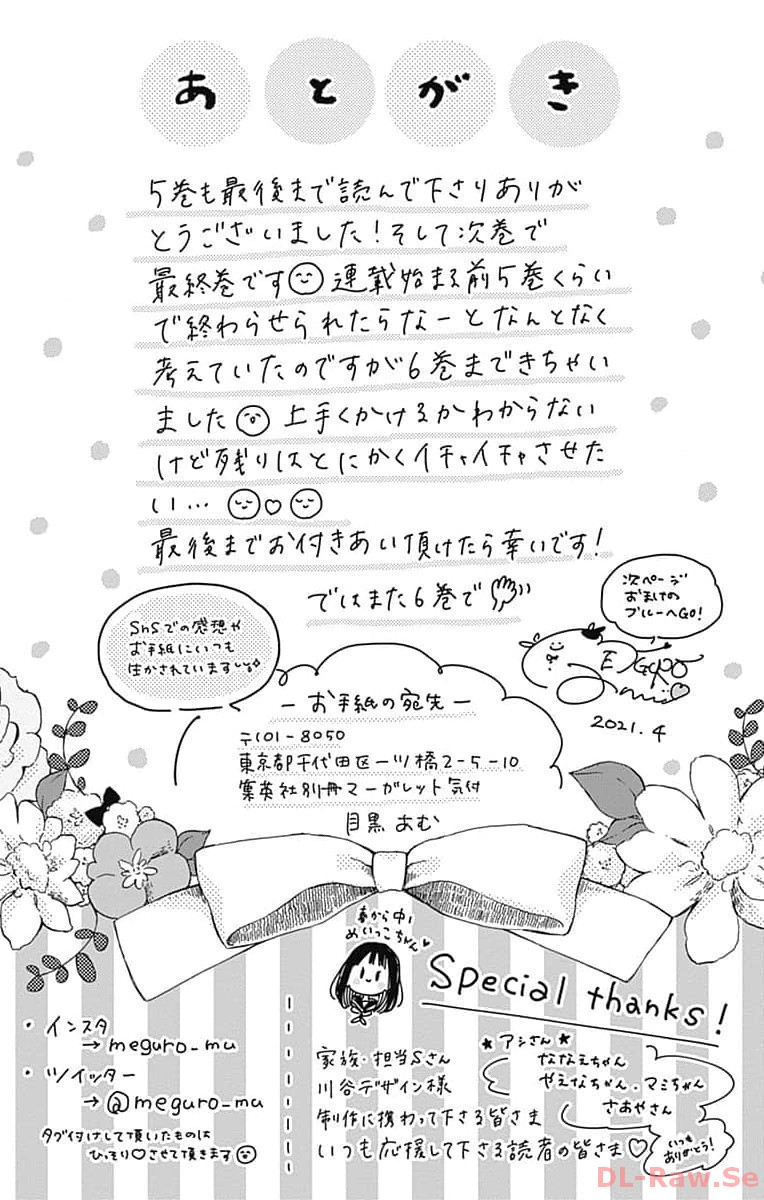 あとがき
5巻も最後まで読んで下さりありが
とうございました!そして次巻で
最終巻です 連載始まる前5巻くらい
で終わらせられたらなーとなんとなく
考えていたのですが6巻まできちゃい
ました 上手くかけるかわからない
けど残りはとにかくイチャイチャさせた
い… ♡
最後までお付きあい頂けたら幸いです!
ではまた6巻で
次ページ
おまけの
ブルーへGO!
SnSでの感想や
お手紙にいつも
生かされています
2021.4
ーお手紙の宛先ー
〒101-8050
東京都千代田区一ツ橋2-5-10
集英社別冊マーガレット気付
目黒あむ
春から中1
めいっこちゃん♥
Special thanks!
・インスタ
→meguro_mu
・ツイッター
→@meguro_mu
タグ付けして頂いたものは
ひっそり♡させて頂きます
家族・担当Sさん
川谷デザイン様
制作に携わって下さる皆さま
いつも応援して下さる読者の皆さま♡
★アシさん★
ななえちゃん
やえなちゃん・マミちゃん
さおやさん
いつも
ありがとう!
DL-Raw.Se